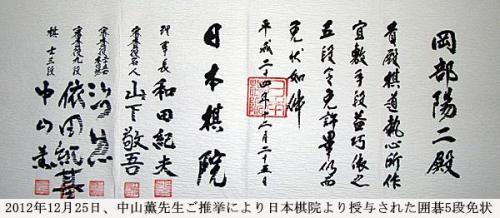 岡部陽二殿
貴殿棋道執心所作
宜敷手段益巧依之
五段令免許畢仍而
免状如件
平成二十四年十二月二十五日
日本棋院
理事長 和田紀夫
審査員名人 山下敬吾
治勲
審査員九段 依田紀基
棋士三段 中山薫
2012年12月25日、中山薫先生ご推挙により日本棋院より授与された囲碁5段免状